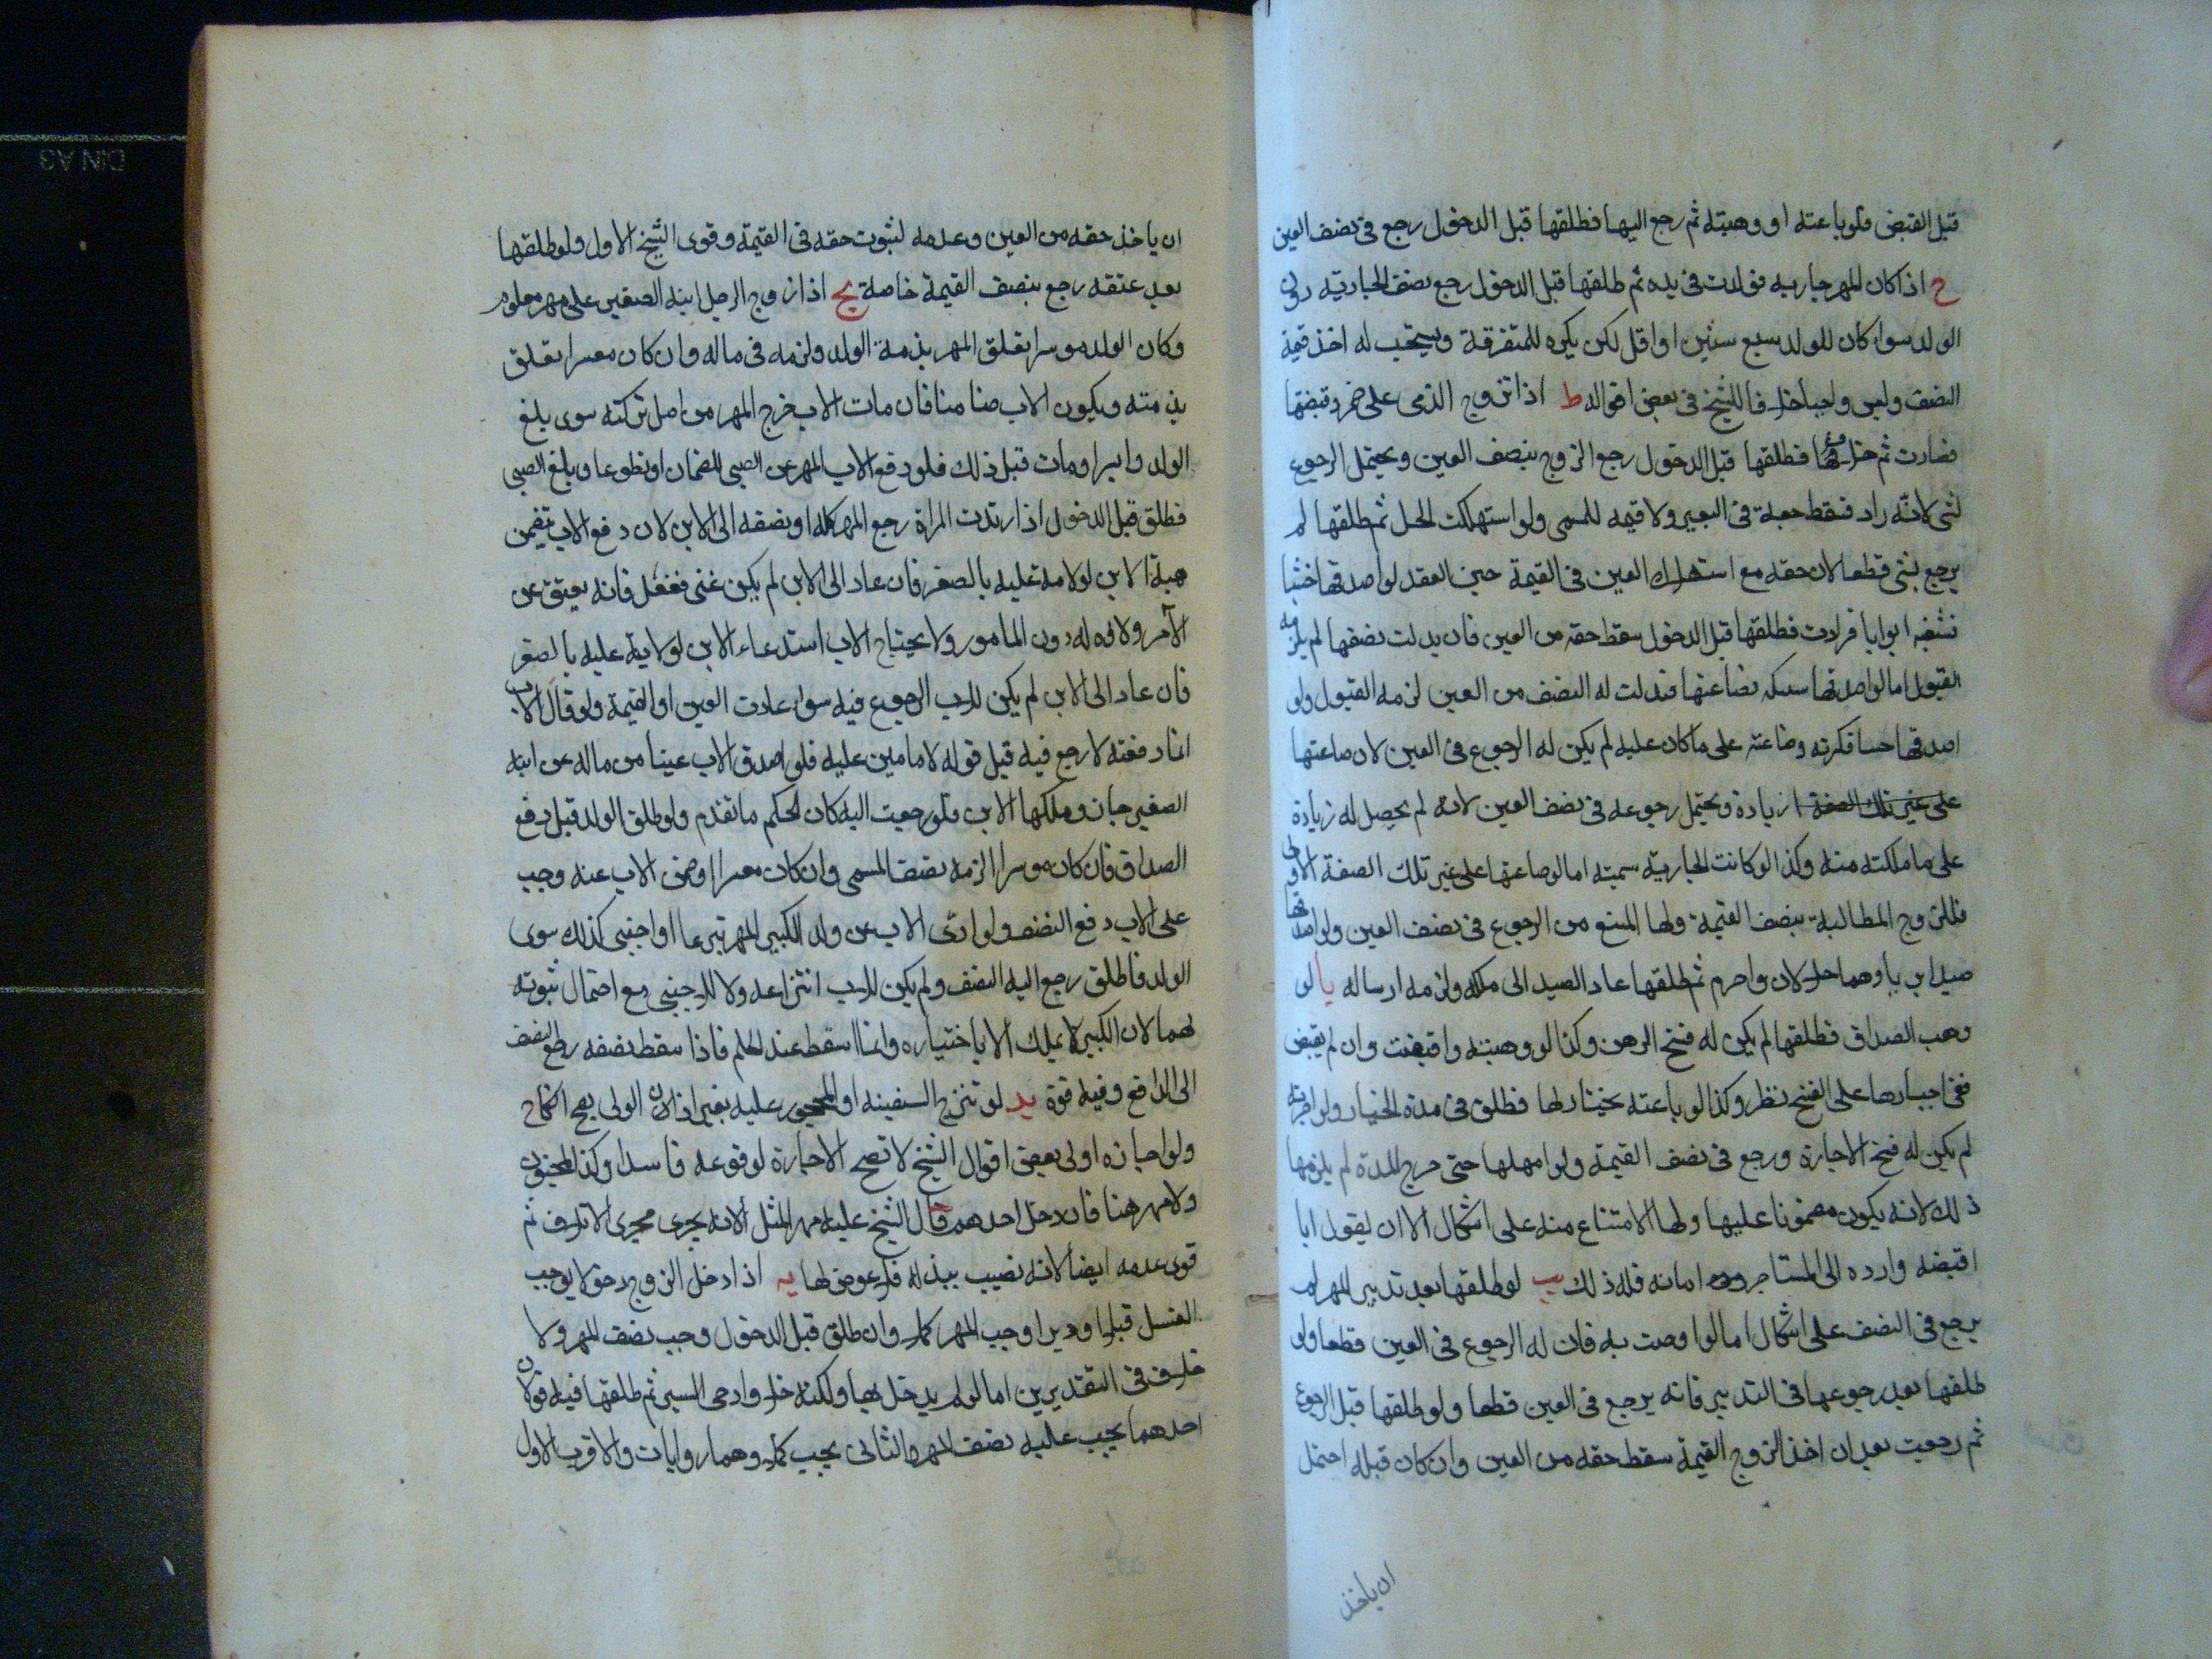 قبل القبض فلو باعته او وهبته ثم رجع اليها فطلقها قبل الدخول رجع في نصف العين
ح اذا كان المهر جارية فولدت في يده ثم طلقها قبل الدخول رجع بنصف الجارية دون
الولد سواء كان للولد سبع سنين او اقل لكن يكره للمتفرقة ويستحب له اخذ قيمة
النصف وليس واجبا خلافا للشيخ في بعض اقواله ط اذا تزوج الذمي على خمر وقبضتها
فصارت ثم خلا فطلقها قبل الدخول رجع الزوج بنصف العين ويحتمل الرجوع
لشي لانه زاد فنقط حصة في العين ولا قيمه للمسمى ولو استهلكت الخل ثم طلقها لم
يرجع بشي قطعا لان حقه مع استهلاك العين في القيمة حين العقد لو اصدقها خشبا
فشقته ابوابا فزادت فطلقها قبل الدخول سقط حقه من العين فان بذلت نصفها لم يلزمه
القبول اما لو اصدقها سبيكة فصاغتها فبذلت له النصف من العين لزمه القبول ولو
اصدقها حليا فكسرته وصاغته على ما كان عليه لم يكن له الرجوع في العين لان صاغتها
على غير تلك الصفة زيادة ويحتمل رجوعه في نصف العين لانه لم يحصل له زيادة
على ما ملكته منه وكذا لو كانت الجارية سمينة اما لو صاغتها على غير تلك الصفة الاولى
فللزوج المطالبة بنصف القيمة ولها المنع من الرجوع في نصف العين ولو اصدقها
صيدا بريا وهما حلالان واحرم ثم طلقها عاد الصيد الى ملكه ولزمه ارساله يا لو
وهب الصداق فطلقها لم يكن له فسخ الرهن وكذا لو وهبته واقبضت وان لم يقبض
ففي اجبارها على الفسخ نظر وكذا لو باعته بخيار لها فطلق في مدة الخيار ولو اجرته
لم يكن له فسخ الاجارة ورجع في نصف القيمة ولو امهلها حتى خرج المدة لم يلزمها
ذلك لانه يكون مضمونا عليها ولها الامتناع منه على اشكال الا ان يقول انا
اقبضه وارده الى المستاجر امانه فله ذلك يب لو طلقها بعد تدبير المهر لم
يرجع في النصف على اشكال اما لو اوصت به فان له الرجوع في العين قطعا ولو
طلقها بعد رجوعها في التدبير فانه يرجع في العين قطعا ولو طلقها قبل الرجوع
ثم رجعت بعد ان اخذ الزوج القيمة سقط حقه من العين وان كان قبله احتمل
ان ياخذ
ان ياخذ حقه من العين وعدمه لثبوت حقه في القيمة وقوى الشيخ الاول ولو طلقها
بعد عتقه رجع بنصف القيمة خاصة يج اذا زوج الرجل ابنه الصغير على مهر معلوم
وكان الولد موسرا تعلق المهر بذمة الولد ولزمه في ماله وان كان معسرا تعلق
بذمته ويكون الاب ضامنا فان مات الاب خرج المهر من اصل تركته سوى بلغ
الولد وايسر او مات قبل ذلك فلو دفع الاب المهر عن الصبي للضمان او تطوعا وبلغ الصبي
فطلق قبل الدخول اذا ارتدت المراة رجع المهر كله او نصفه الى الابن لان دفع الاب يتضمن
هبة الابن لولايته عليه بالصغر فان عاد الى الابن لم يكن غنى ففعل فانه يعتق عن
الآمر ولاؤه له دون المامور ولا يحتاج الاب استدعاء الابن لولايته عليه بالصغر
فان عاد الى الابن لم يكن للاب الرجوع فيه سواء عادت العين او القيمة ولو قال الاب
انما دفعته لارجع فيه قبل قوله فلو اصدق الاب عينا من ماله عن ابنه
الصغير جاز وملكها الابن فلو رجعت اليه كان الحكم ما تقدم ولو طلق الولد قبل دفع
الصداق فان كان موسرا لزمه نصف المسمى وان كان معسرا وضمن الاب عنه وجب
على الاب دفع النصف ولو ادى الاب عن ولد الكبير المهر تبرعا او اجنبي كذلك سوى
الولد فاطلق رجع اليه النصف ولم يكن للاب انتزاعه ولا للاجنبي مع احتمال ثبوته
لهما لان الكبير لا يملك الا باختياره وانما اسقط عند الحلم فاذا سقط نصفه رجع النصف
الى الدافع وفيه قوة يد لو تزوج السفيه او المحجور عليه بغير اذن الولى بصح النكاح
ولو اجازه او لى بعض اقوال الشيخ لا تصح الاجارة لوقوعه فاسدا وكذا المجنون
ولا مهر هنا فان دخل احدهم قال الشيخ عليه مهر المثل لانه يجرى مجرى الاتلاف ثم
قوى عدمه ايضا لانه نصيب ببذله فلا عوض لها يه اذا دخل الزوج دخولا يوجب
الغسل قبلا او دبرا وجب المهر كملا وان طلق قبل الدخول وجب نصف المهر ولا
خلاف في التقديرين اما لو لم يدخل بها ولكنه خلا وارخى الستر ثم طلقها فيه قولان
احدهما يجب عليه نصف المهر والثانى يجب كملا وهما روايات والاقرب الاول